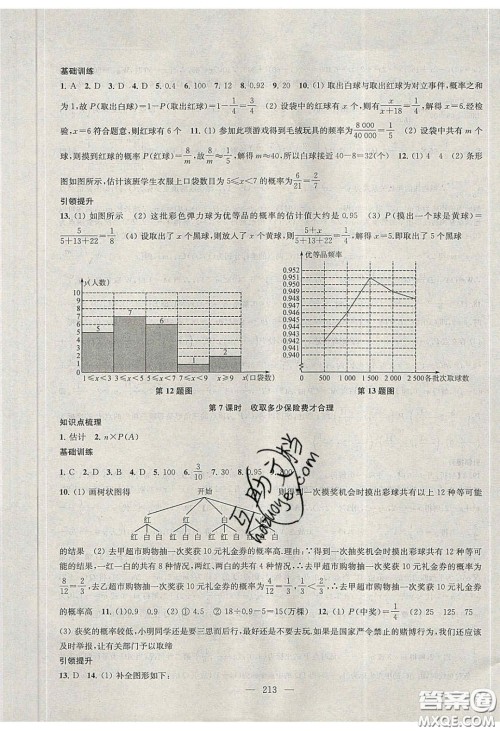 基础训练
1. A 2. D 3. D 4. D 5. 0.4 6. 100 7. 12 8. 0.92 9. 20 10. (1) 取出白球与取出红球为对立事件,概率之和
为 1,故 P(取出白球)=1-P(取出红球)=1-1/4=3/4 (2) 设袋中的红球有 x 个,则有 x/(x+18)=1/4,解得 x=6.经检
验,x=6 符合题意,则红球有 6 个 11. (1) 参加此项游戏得到毛绒玩具的频率为 8 000/40 000=1/5 (2) 设袋中共有 m 个
球,则摸到红球的概率 P(红球)=8/m,故 8/m≈1/5,解得 m≈40,所以白球接近 40-8=32(个) 12. (1) 4 4 (2) 条形
图如图所示,估计该班学生衣服上口袋数目为 5≤x<7 的概率为 6/21=2/7
引领提升
13. (1) 如图所示 (2) 这批彩色弹力球为优等品的概率的估计值大约是 0.95 (3) P(摸出一个球是黄球)=
5/(5+13+22)=1/8 (4) 设取出了 x 个黑球,则放入了 x 个黄球,则 (5+x)/(5+13+22)=1/4,解得 x=5,所以取出了 5 个黑球
y(人数)
8
7
6
5
4
3
2
1
0
5
7
6
1
2
1≤x<3 3≤x<5 5≤x<7 7≤x<9 x≥9 x(口袋数)
第12题图
优等品频率
0.952
0.951
0.950
0.949
0.948
0.947
0.946
0.945
0.944
0.943
0.942
0.941
0.940
0 500 1 000 1 500 2 000 2 500 各批次取球数
第13题图
第 7 课时 收取多少保险费才合理
知识点梳理
1. 估计 2. n×P(A)
基础训练
1. C 2. D 3. B 4. D 5. C 6. 3/10 7. 30 8. 0.95 9. 200
10. (1) 画树状图得 开始 则得到一次摸奖机会时摸出彩球共有以上 12 种等可能
红 红 白 白
红 白 白 红 白 白 红 红 白 红 红 白
的结果 (2) 去甲超市购物抽一次奖获 10 元礼金券的概率高.理由:∵得到一次抽奖机会时摸出彩球共有 12 种等可
能的结果,一红一白的共有 8 种等可能的结果,两红、两白的共有 4 种,∴去甲超市购物抽一次奖获 10 元礼金券的概率为
8/12=2/3,去乙超市购物抽一次奖获 10 元礼金券的概率为 4/12=1/3.∵1/3<2/3,∴去甲超市购物抽一次奖获 10 元礼金
券的概率高 11. (1) 0.9 0.9 (2) ① 4.5 ② 18÷0.9-5=15(万棵) 12. (1) P(中奖)=1/4 (2) 25 125 75
(3) 获奖的概率较低,小明同学还是要三思而后行,最好不要去玩,如果是国家严令禁止的赌博行为,我们还应该
及时举报,让有关部门予以取缔
引领提升
13. D 14. (1) 补全图形如下:
213
答案圈
MXQE.COM